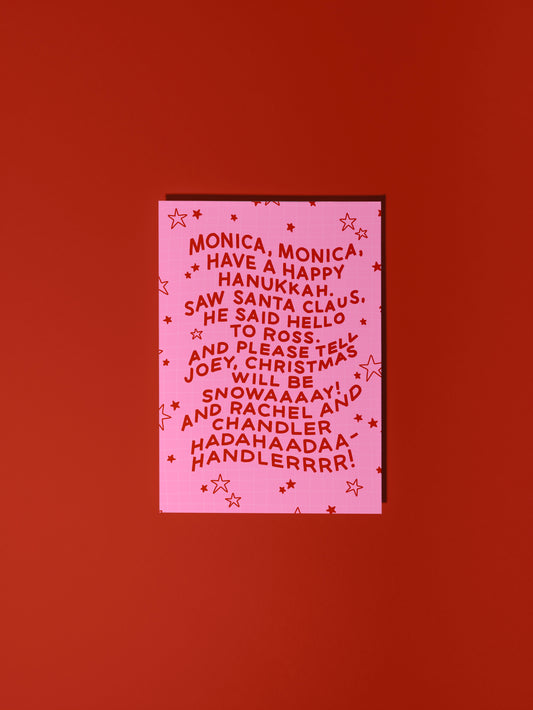 MONICA, MONICA,
HAVE A HAPPY
HANUKKAH.
SAW SANTA CLAUS,
HE SAID HELLO
TO ROSS.
AND PLEASE TELL
JOEY, CHRISTMAS
WILL BE
SNOWAAAAY!
AND RACHEL AND
CHANDLER
HADAHAADAA-
HANDLERRRR!